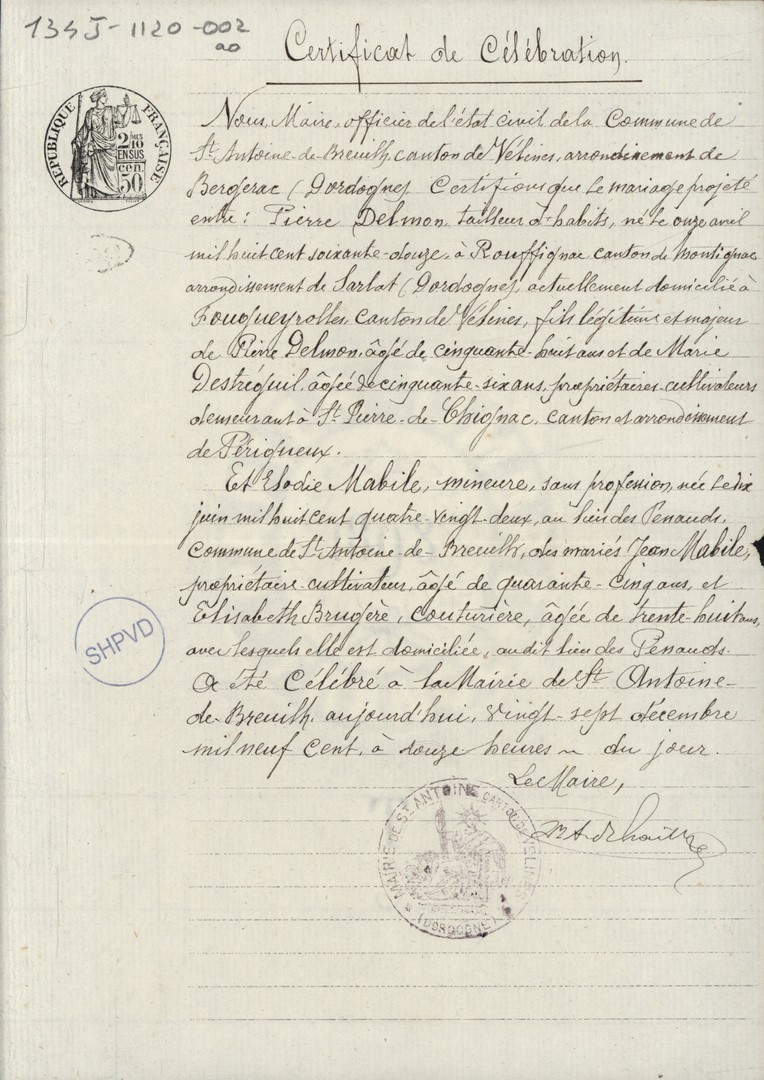 134 J - 1120 - 002
ao
Certificat de Célébration.
RÉPUBLIQUE FRANÇAISE
2/10
EN SUS
50 cen.
Nous, Maire, officier de l'état civil de la Commune de
St Antoine-de-Breuilh, canton de Vélines, arrondissement de
Bergerac (Dordogne), Certifions que le mariage projeté
entre: Pierre Delmon, tailleur d'habits, né le onze avril
mil huit cent soixante-douze, à Rouffignac, canton de Montignac
arrondissement de Sarlat (Dordogne), actuellement domicilié à
Fougueyrolles, canton de Vélines, fils légitime et majeur
de Pierre Delmon, âgé de cinquante-huit ans et de Marie
Destréguil, âgée de cinquante-six ans, propriétaires-cultivateurs
demeurant à St Pierre-de-Chignac, canton et arrondissement
de Périgueux.
Et Elodie Mabile, mineure, sans profession, née le dix
juin mil huit cent quatre-vingt-deux, au lieu des Penauds,
Commune de St Antoine-de-Breuilh, des mariés Jean Mabile,
propriétaire-cultivateur, âgé de quarante-cinq ans, et
Elisabeth Brugère, couturière, âgée de trente-huit ans,
avec lesquels elle est domiciliée, au dit lieu des Penauds.
a été Célébré à la Mairie de St Antoine-
de-Breuilh, aujourd'hui, vingt-sept décembre
mil neuf cent, à douze heures du jour.
Le Maire,
SHPVD
MAIRIE DE ST ANTOINE CANT. DE VELINES
(DORDOGNE)